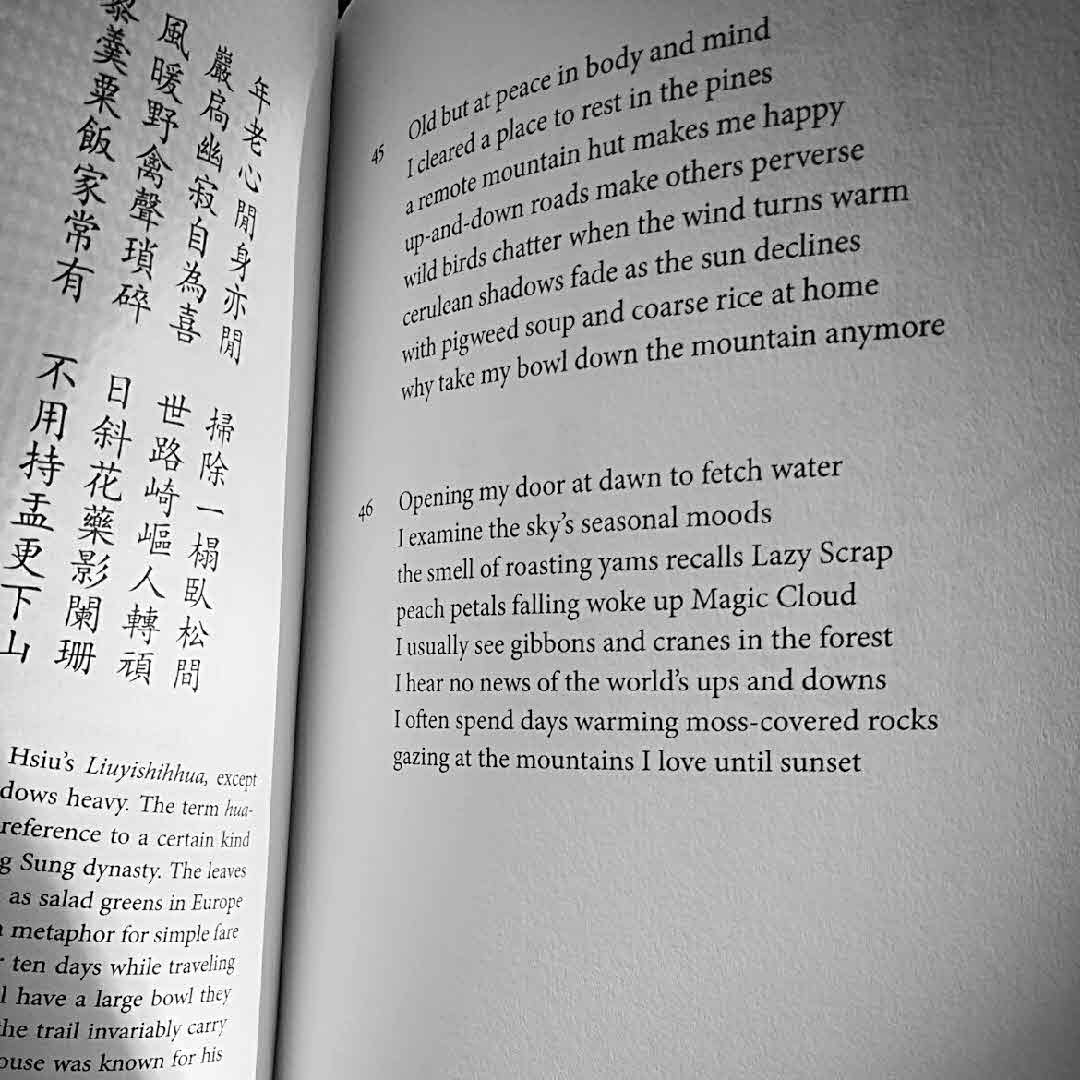 年老心閒身亦閒 掃除一榻臥松間
巖扃幽寂自為喜 世路崎嶇人轉頑
風暖野禽聲瑣碎 日斜花藥影闌珊
羹粟飯家常有 不用持盂更下山
Hsiu's Liuyishihhua, except
dows heavy. The term hua-
reference to a certain kind
g Sung dynasty. The leaves
as salad greens in Europe
metaphor for simple fare
ten days while traveling
l have a large bowl they
he trail invariably carry
ouse was known for his
45 Old but at peace in body and mind
I cleared a place to rest in the pines
a remote mountain hut makes me happy
up-and-down roads make others perverse
wild birds chatter when the wind turns warm
cerulean shadows fade as the sun declines
with pigweed soup and coarse rice at home
why take my bowl down the mountain anymore
46 Opening my door at dawn to fetch water
I examine the sky's seasonal moods
the smell of roasting yams recalls Lazy Scrap
peach petals falling woke up Magic Cloud
I usually see gibbons and cranes in the forest
I hear no news of the world's ups and downs
I often spend days warming moss-covered rocks
gazing at the mountains I love until sunset